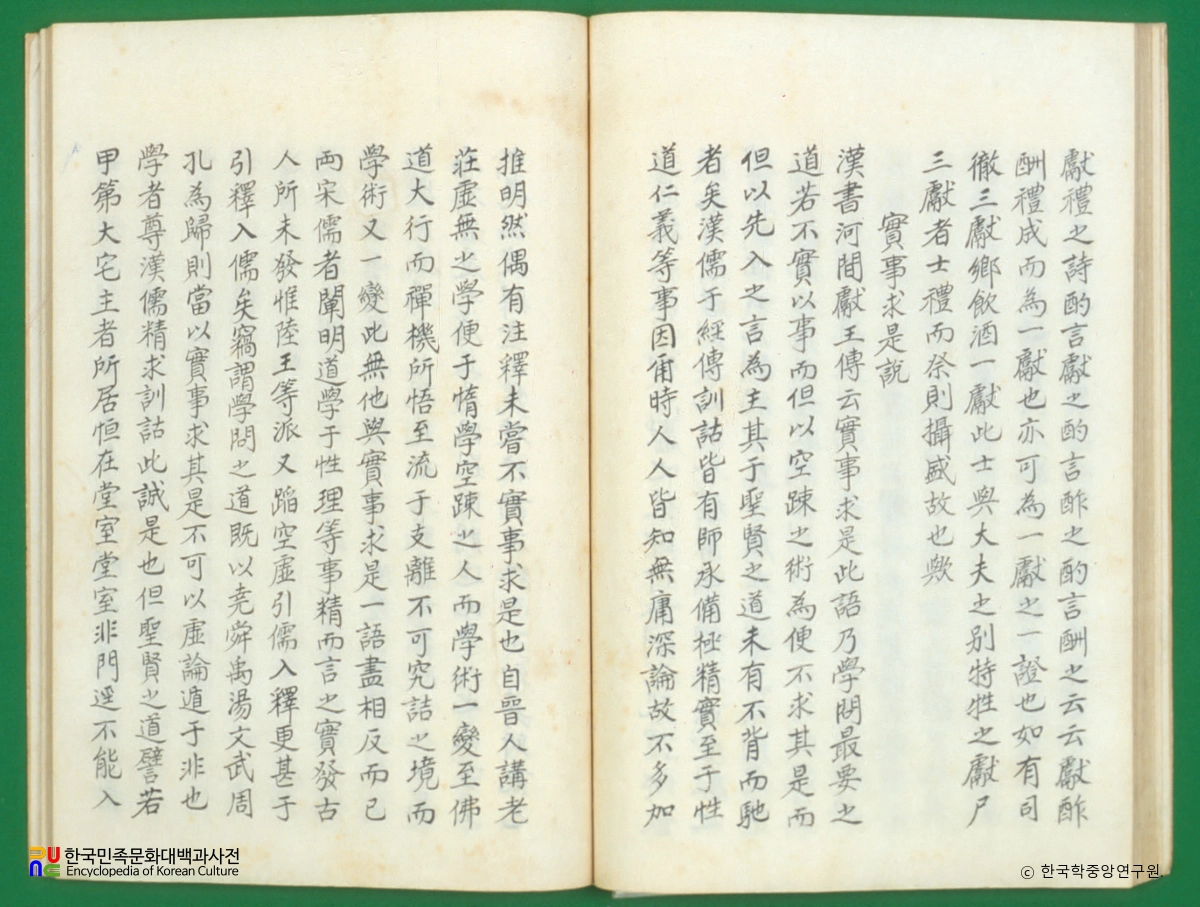 獻禮之詩酌言獻之酌言酢之酌言酬之云云獻酢
酬禮成而為一獻也亦可為一獻之一證也如有司
徹三獻鄉飲酒一獻此士與大夫之别特牲之獻尸
三獻者士禮而祭則攝盛故也歟
實事求是說
漢書河間獻王傳云實事求是此語乃學問最要之
道若不實以事而但以空踈之術為便不求其是而
但以先入之言為主其于聖賢之道未有不背而馳
者矣漢儒于經傳訓詁皆有師承備極精實至于性
道仁義等事因爾時人人皆知無庸深論故不多加
推明然偶有注釋未嘗不實事求是也自晉人講老
莊虛無之學便于惰學空踈之人而學術一變至佛
道大行而禪機所悟至流于支離不可究詰之境而
學術又一變此無他與實事求是一語盡相反而已
兩宋儒者闡明道學于性理等事精而言之實發古
人所未發惟陸王等派又蹈空虛引儒入釋更甚于
引釋入儒矣竊謂學問之道既以堯舜禹湯文武周
孔為歸則當以實事求其是不可以虛論遁于非也
學者尊漢儒精求訓詁此誠是也但聖賢之道譬若
甲第大宅主者所居恒在堂室堂室非門逕不能入
한국민족문화대백과사전
Encyclopedia of Korean Culture
ⓒ 한국학중앙연구원.